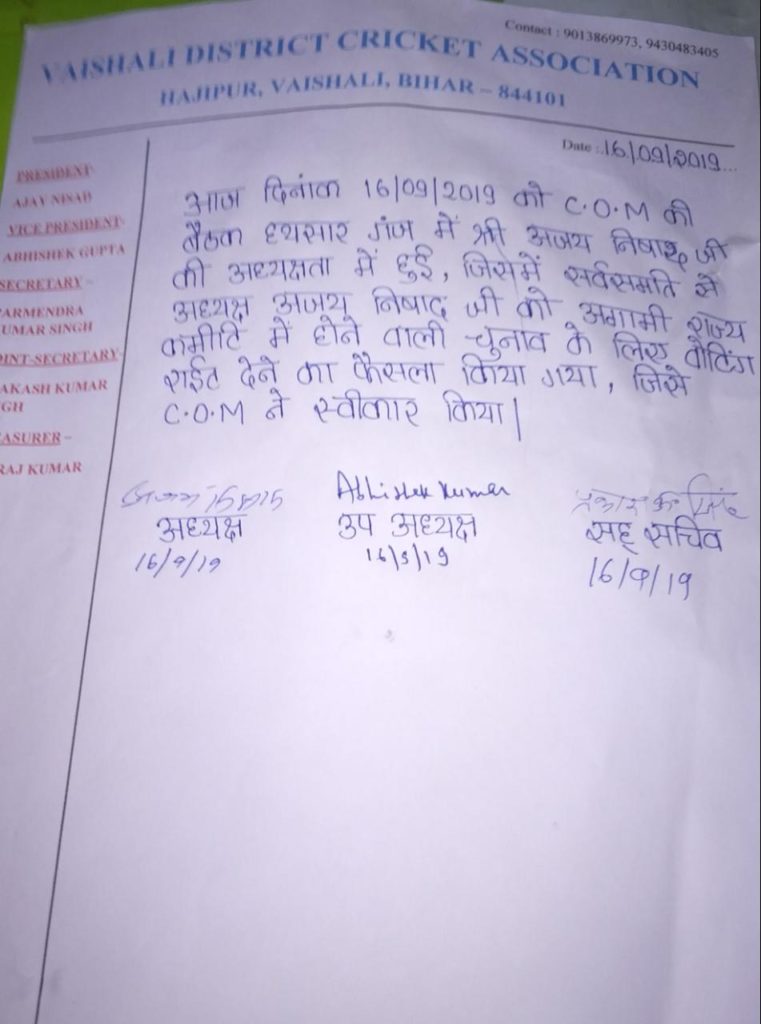 Contact : 9013869973, 9430483405
VAISHALI DISTRICT CRICKET ASSOCIATION
HAJIPUR, VAISHALI, BIHAR – 844101
Date :.16/09/2019...
PRESIDENT-
AJAY NISAD
VICE PRESIDENT-
ABHISHEK GUPTA
SECRETARY –
ARMENDRA
UMAR SINGH
INT-SECRETARY-
AKASH KUMAR
GH
ASURER –
RAJ KUMAR
आज दिनांक 16/09/2019 को C.O.M की
बैठक हथसार गंज में श्री अजय निषाद जी
की अध्यक्षता में हुई, जिसमें सर्वसमति से
अध्यक्ष अजय निषाद जी को अगामी राज्य
कमीटि में होने वाली चुनाव के लिए वोटिंग
राईट देने का फैसला किया गया, जिसे
C.O.M ने स्वीकार किया|
Abhishek Kumar
अध्यक्ष उप अध्यक्ष सह सचिव
16/9/19 16/9/19 16/9/19